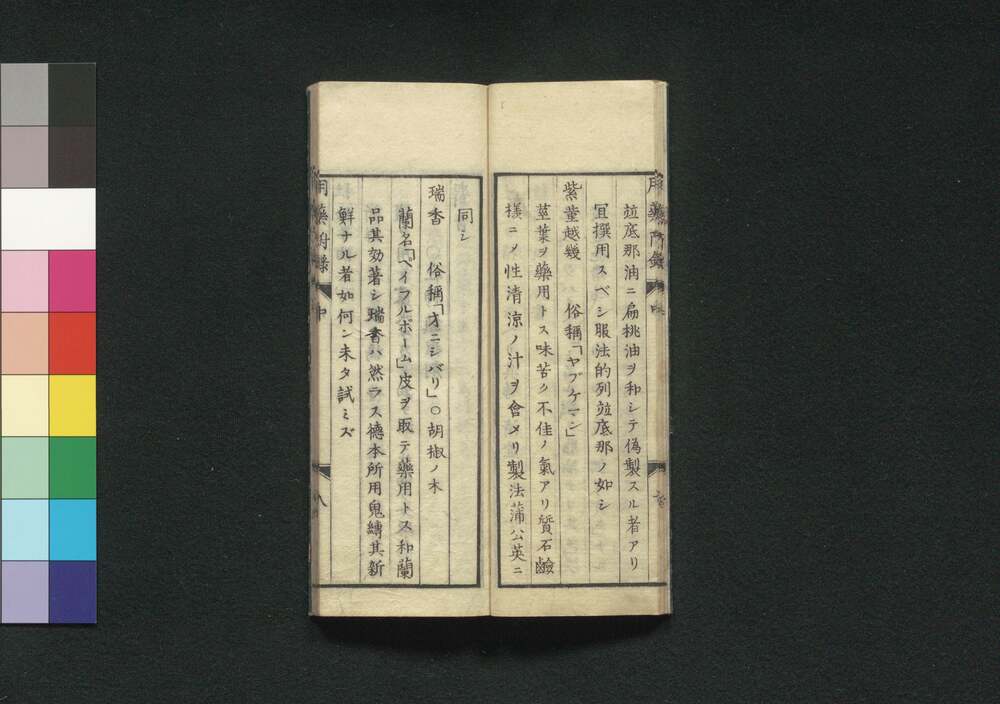 竝底那油ニ扁桃油ヲ和シテ偽製スル者アリ
冝撰用スベシ服法的列竝底那ノ如シ
紫菫越幾 俗稱「ヤブケマン」
莖葉ヲ藥用トス味苦ク不佳ノ氣アリ質石鹼
樣ニメ性清涼ノ汁ヲ含メリ製法蒲公英ニ
同シ
瑞香 〇俗稱「オニシバリ」〇胡椒ノ木
蘭名「ペイフルボーム」皮ヲ取テ藥用トス和蘭
品其効著シ瑞香ハ然ラス德本所用鬼縛其新
鮮ナル者如何ン未タ試ミズ
用藥附録 中 八